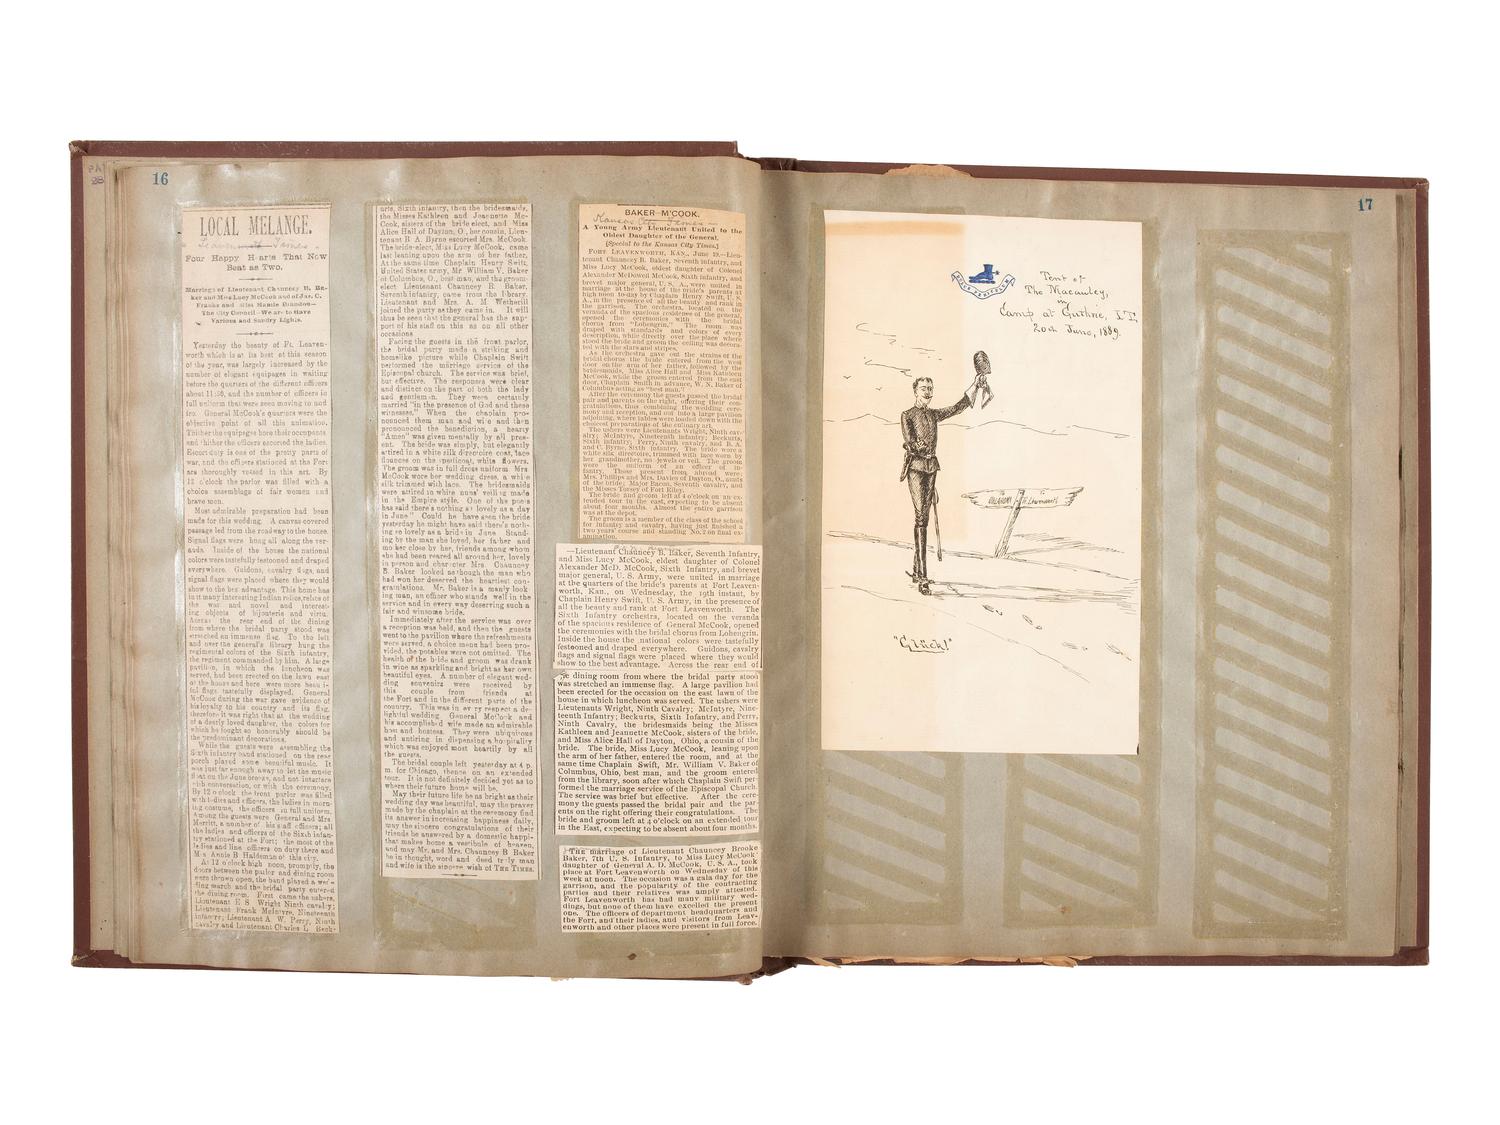 16
LOCAL MELANGE.
Four Happy H arts That Now
Beat as Two.
Marriage of Lieutenant Chauncey B. Ba-
ker and Miss Lucy McCook and of Jas. C.
Franks and Miss Mamie Brandon—
The City Council—We are to Have
Various and Sundry Lights.
Yesterday the beauty of Ft. Leaven-
worth which is at its best at this season
of the year, was largely increased by the
number of elegant equipages in waiting
before the quarters of the different officers
about 11:30, and the number of officers in
full uniform that were seen moving to and
fro. General McCook's quarters were the
objective point of all this animation.
Thither the equipages bore their occupants
and thither the officers escorted the ladies.
Escort duty is one of the pretty parts of
war, and the officers stationed at the Fort
are thoroughly versed in this art. By
12 o'clock the parlor was filled with a
choice assemblage of fair women and
brave men.
Most admirable preparation had been
made for this wedding. A canvas covered
passage led from the roadway to the house.
Signal flags were hung all along the ver-
anda. Inside of the house the national
colors were tastefully festooned and draped
everywhere. Guidons, cavalry flags, and
signal flags were placed where they would
show to the best advantage. This home has
in it many interesting Indian relics, relics of
the war and novel and interest-
ing objects of bijouterie and virtu.
Across the rear end of the dining
from where the bridal party stood was
stretched an immense flag. To the left
and over the general's library hung the
regimental colors of the Sixth infantry,
the regiment commanded by him. A large
pavilion, in which the luncheon was
served, had been erected on the lawn east
of the house and here were more beauti-
ful flags tastefully displayed. General
McCook during the war gave evidence of
his loyalty to his country and its flag,
therefore it was right that at the wedding
of a dearly loved daughter, the colors for
which he fought so honorably should be
the predominant decorations.
While the guests were assembling the
Sixth infantry band stationed on the rear
porch played some beautiful music. It
was just far enough away to let the music
float on the June breeze, and not interfere
with conversation, or with the ceremony.
By 12 o'clock the front parlor was filled
with ladies and officers, the ladies in morn-
ing costume, the officers in full uniform.
Among the guests were General and Mrs.
Merritt, a number of his staff officers; all
the ladies and officers of the Sixth infan-
try stationed at the Fort; the most of the
ladies and line officers on duty there and
Mrs Annie B Haldeman of this city.
At 12 o'clock high noon, promptly, the
doors between the parlor and dining room
were thrown open, the band played a wed-
ding march and the bridal party entered
the dining room. First came the ushers,
Lieutenant E S Wright Ninth cavalry;
Lieutenant Frank McIntyre, Nineteenth
infantry; Lieutenant A. W. Perry, Ninth
cavalry and Lieutenant Charles L Beck-
urts, Sixth infantry, then the bridesmaids,
the Misses Kathleen and Jeannette Mc-
Cook, sisters of the bride elect, and Miss
Alice Hall of Dayton, O., her cousin, Lieu-
tenant B A. Byrne escorted Mrs. McCook.
The bride-elect, Miss Lucy McCook, came
last leaning upon the arm of her father,
At the same time Chaplain Henry Swift,
United States army, Mr. William V. Baker
of Columbus, O., best man, and the groom-
elect Lieutenant Chauncey B. Baker,
Seventh infantry, came from the library.
Lieutenant and Mrs. A. M. Wetherill
joined the party as they came in. It will
thus be seen that the general has the sup-
port of his staff on this as on all other
occasions
Facing the guests in the front parlor,
the bridal party made a striking and
homelike picture while Chaplain Swift
performed the marriage service of the
Episcopal church. The service was brief,
but effective. The responses were clear
and distinct on the part of both the lady
and gentleman. They were certainly
married "in the presence of God and these
witnesses." When the chaplain pro-
nounced them man and wife and then
pronounced the benediction, a hearty
"Amen" was given mentally by all pres-
ent. The bride was simply, but elegantly
attired in a white silk directoire coat, lace
flounces on the petticoat, white flowers.
The groom was in full dress uniform Mrs.
McCook wore her wedding dress, a white
silk trimmed with lace. The bridesmaids
were attired in white nuns' veiling made
in the Empire style. One of the poets
has said there's nothing as lovely as a day
in June" Could he have seen the bride
yesterday he might have said there's noth-
ing so lovely as a bride in June Stand-
ing by the man she loved, her father and
mother close by her, friends among whom
she had been reared all around her, lovely
in person and character Mrs. Chauncey
B. Baker looked as though the man who
had won her deserved the heartiest con-
gratulations. Mr. Baker is a manly look
ing man, an officer who stands well in the
service and in every way deserving such a
fair and winsome bride.
Immediately after the service was over
a reception was held, and then the guests
went to the pavilion where the refreshments
were served, a choice menu had been pro-
vided, the potables were not omitted. The
health of the bride and groom was drank
in wine as sparkling and bright as her own
beautiful eyes. A number of elegant wed-
ding souvenirs were received by
this couple from friends at
the Fort and in the different parts of the
country. This was in every respect a de-
lightful wedding. General McCook and
his accomplished wife made an admirable
host and hostess. They were ubiquitous
and untiring in dispensing a hospitality
which was enjoyed most heartily by all
the guests.
The bridal couple left yesterday at 4 p.
m. for Chicago, thence on an extended
tour. It is not definitely decided yet as to
where their future home will be.
May their future life be as bright as their
wedding day was beautiful, may the prayer
made by the chaplain at the ceremony find
its answer in increasing happiness daily,
may the sincere congratulations of their
friends be answered by a domestic happi-
that makes home a vestibule of heaven,
and may Mr. and Mrs. Chauncey B Baker
be in thought, word and deed truly man
and wife is the sincere wish of THE TIMES.
BAKER-M'COOK.
Kansas City Times—
A Young Army Lieutenant United to the
Oldest Daughter of the General.
[Special to the Kansas City Times.]
FORT LEAVENWORTH, KAN., June 19.—Lieu-
tenant Chauncey B. Baker, Seventh infantry, and
Miss Lucy McCook, eldest daughter of Colonel
Alexander McDowell McCook, Sixth infantry, and
brevet major general, U. S. A., were united in
marriage at the house of the bride's parents at
high noon to-day by Chaplain Henry Swift, U. S.
A., in the presence of all the beauty and rank in
the garrison. The orchestra, located on the
veranda of the spacious residence of the general,
opened the ceremonies with the bridal
chorus from "Lohengrin." The room was
draped with standards and colors of every
description, while directly over the place where
stood the bride and groom the ceiling was decora-
ted with the stars and stripes.
As the orchestra gave out the strains of the
bridal chorus the bride entered from the west
door on the arm of her father, followed by the
bridesmaids, Miss Alice Hall and Miss Kathleen
McCook, while the groom entered from the east
door, Chaplain Smith in advance, W. N. Baker of
Columbus acting as "best man."
After the ceremony the guests passed the bridal
pair and parents on the right, offering their con-
gratulations, thus combining the wedding cere-
mony and reception, and out into a large pavilion
adjoining, where tables were loaded down with the
choicest preparations of the culinary art.
The ushers were Lieutenants Wright, Ninth cav-
alry; McIntyre, Nineteenth infantry; Beckurts,
Sixth infantry; Perry, Ninth cavalry, and B. A.
and C. Byrne, Sixth infantry. The bride wore a
white silk directoire, trimmed with lace worn by
her grandmother, no jewels or veil. The groom
wore the uniform of an officer of in-
fantry. Those present from abroad were:
Mrs. Phillips and Mrs. Davies of Dayton, O., aunts
of the bride; Major Bacon, Seventh cavalry, and
the Misses Torsey of Fort Riley.
The bride and groom left at 4 o'clock on an ex-
tended tour in the east, expecting to be absent
about four months. Almost the entire garrison
was at the depot.
The groom is a member of the class of the school
for infantry and cavalry, having just finished a
two years' course and standing No. 2 on final ex-
amination.
—Lieutenant Chauncey B. Baker, Seventh Infantry,
and Miss Lucy McCook, eldest daughter of Colonel
Alexander McD. McCook, Sixth Infantry, and brevet
major general, U. S. Army, were united in marriage
at the quarters of the bride's parents at Fort Leaven-
worth, Kan., on Wednesday, the 19th instant, by
Chaplain Henry Swift, U. S. Army, in the presence of
all the beauty and rank at Fort Leavenworth. The
Sixth Infantry orchestra, located on the veranda
of the spacious residence of General McCook, opened
the ceremonies with the bridal chorus from Lohengrin.
Inside the house the national colors were tastefully
festooned and draped everywhere. Guidons, cavalry
flags and signal flags were placed where they would
show to the best advantage. Across the rear end of
the dining room from where the bridal party stood
was stretched an immense flag. A large pavilion had
been erected for the occasion on the east lawn of the
house in which luncheon was served. The ushers were
Lieutenants Wright, Ninth Cavalry; McIntyre, Nine-
teenth Infantry; Beckurts, Sixth Infantry, and Perry,
Ninth Cavalry, the bridesmaids being the Misses
Kathleen and Jeannette McCook, sisters of the bride,
and Miss Alice Hall of Dayton, Ohio, a cousin of the
bride. The bride, Miss Lucy McCook, leaning upon
the arm of her father, entered the room, and at the
same time Chaplain Swift, Mr. William V. Baker of
Columbus, Ohio, best man, and the groom entered
from the library, soon after which Chaplain Swift per-
formed the marriage service of the Episcopal Church.
The service was brief but effective. After the cere-
mony the guests passed the bridal pair and the par-
ents on the right offering their congratulations. The
bride and groom left at 4 o'clock on an extended tour
in the East, expecting to be absent about four months.
The marriage of Lieutenant Chauncey Brooke
Baker, 7th U. S. Infantry, to Miss Lucy McCook
daughter of General A. D. McCook, U. S. A., took
place at Fort Leavenworth on Wednesday of this
week at noon. The occasion was a gala day for the
garrison, and the popularity of the contracting
parties and their relatives was amply attested.
Fort Leavenworth has had many military wed-
dings, but none of them have excelled the present
one. The officers of department headquarters and
the Fort, and their ladies, and visitors from Leav-
enworth and other places were present in full force.
17
Tent of
The Macauley,
in
Camp at Guthrie, I.T.
20th June, 1889.
OKLAHOMA
Ft. Leavenworth
"Glück!"